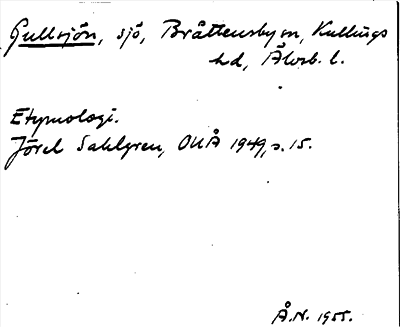 Gullsjön, sjö, Bråttensby sn, Kullings
hd, Älvsb. l.
Etymologi.
Jöran Sahlgren, OUÅ 1949, s. 15.
Å.N. 1955.